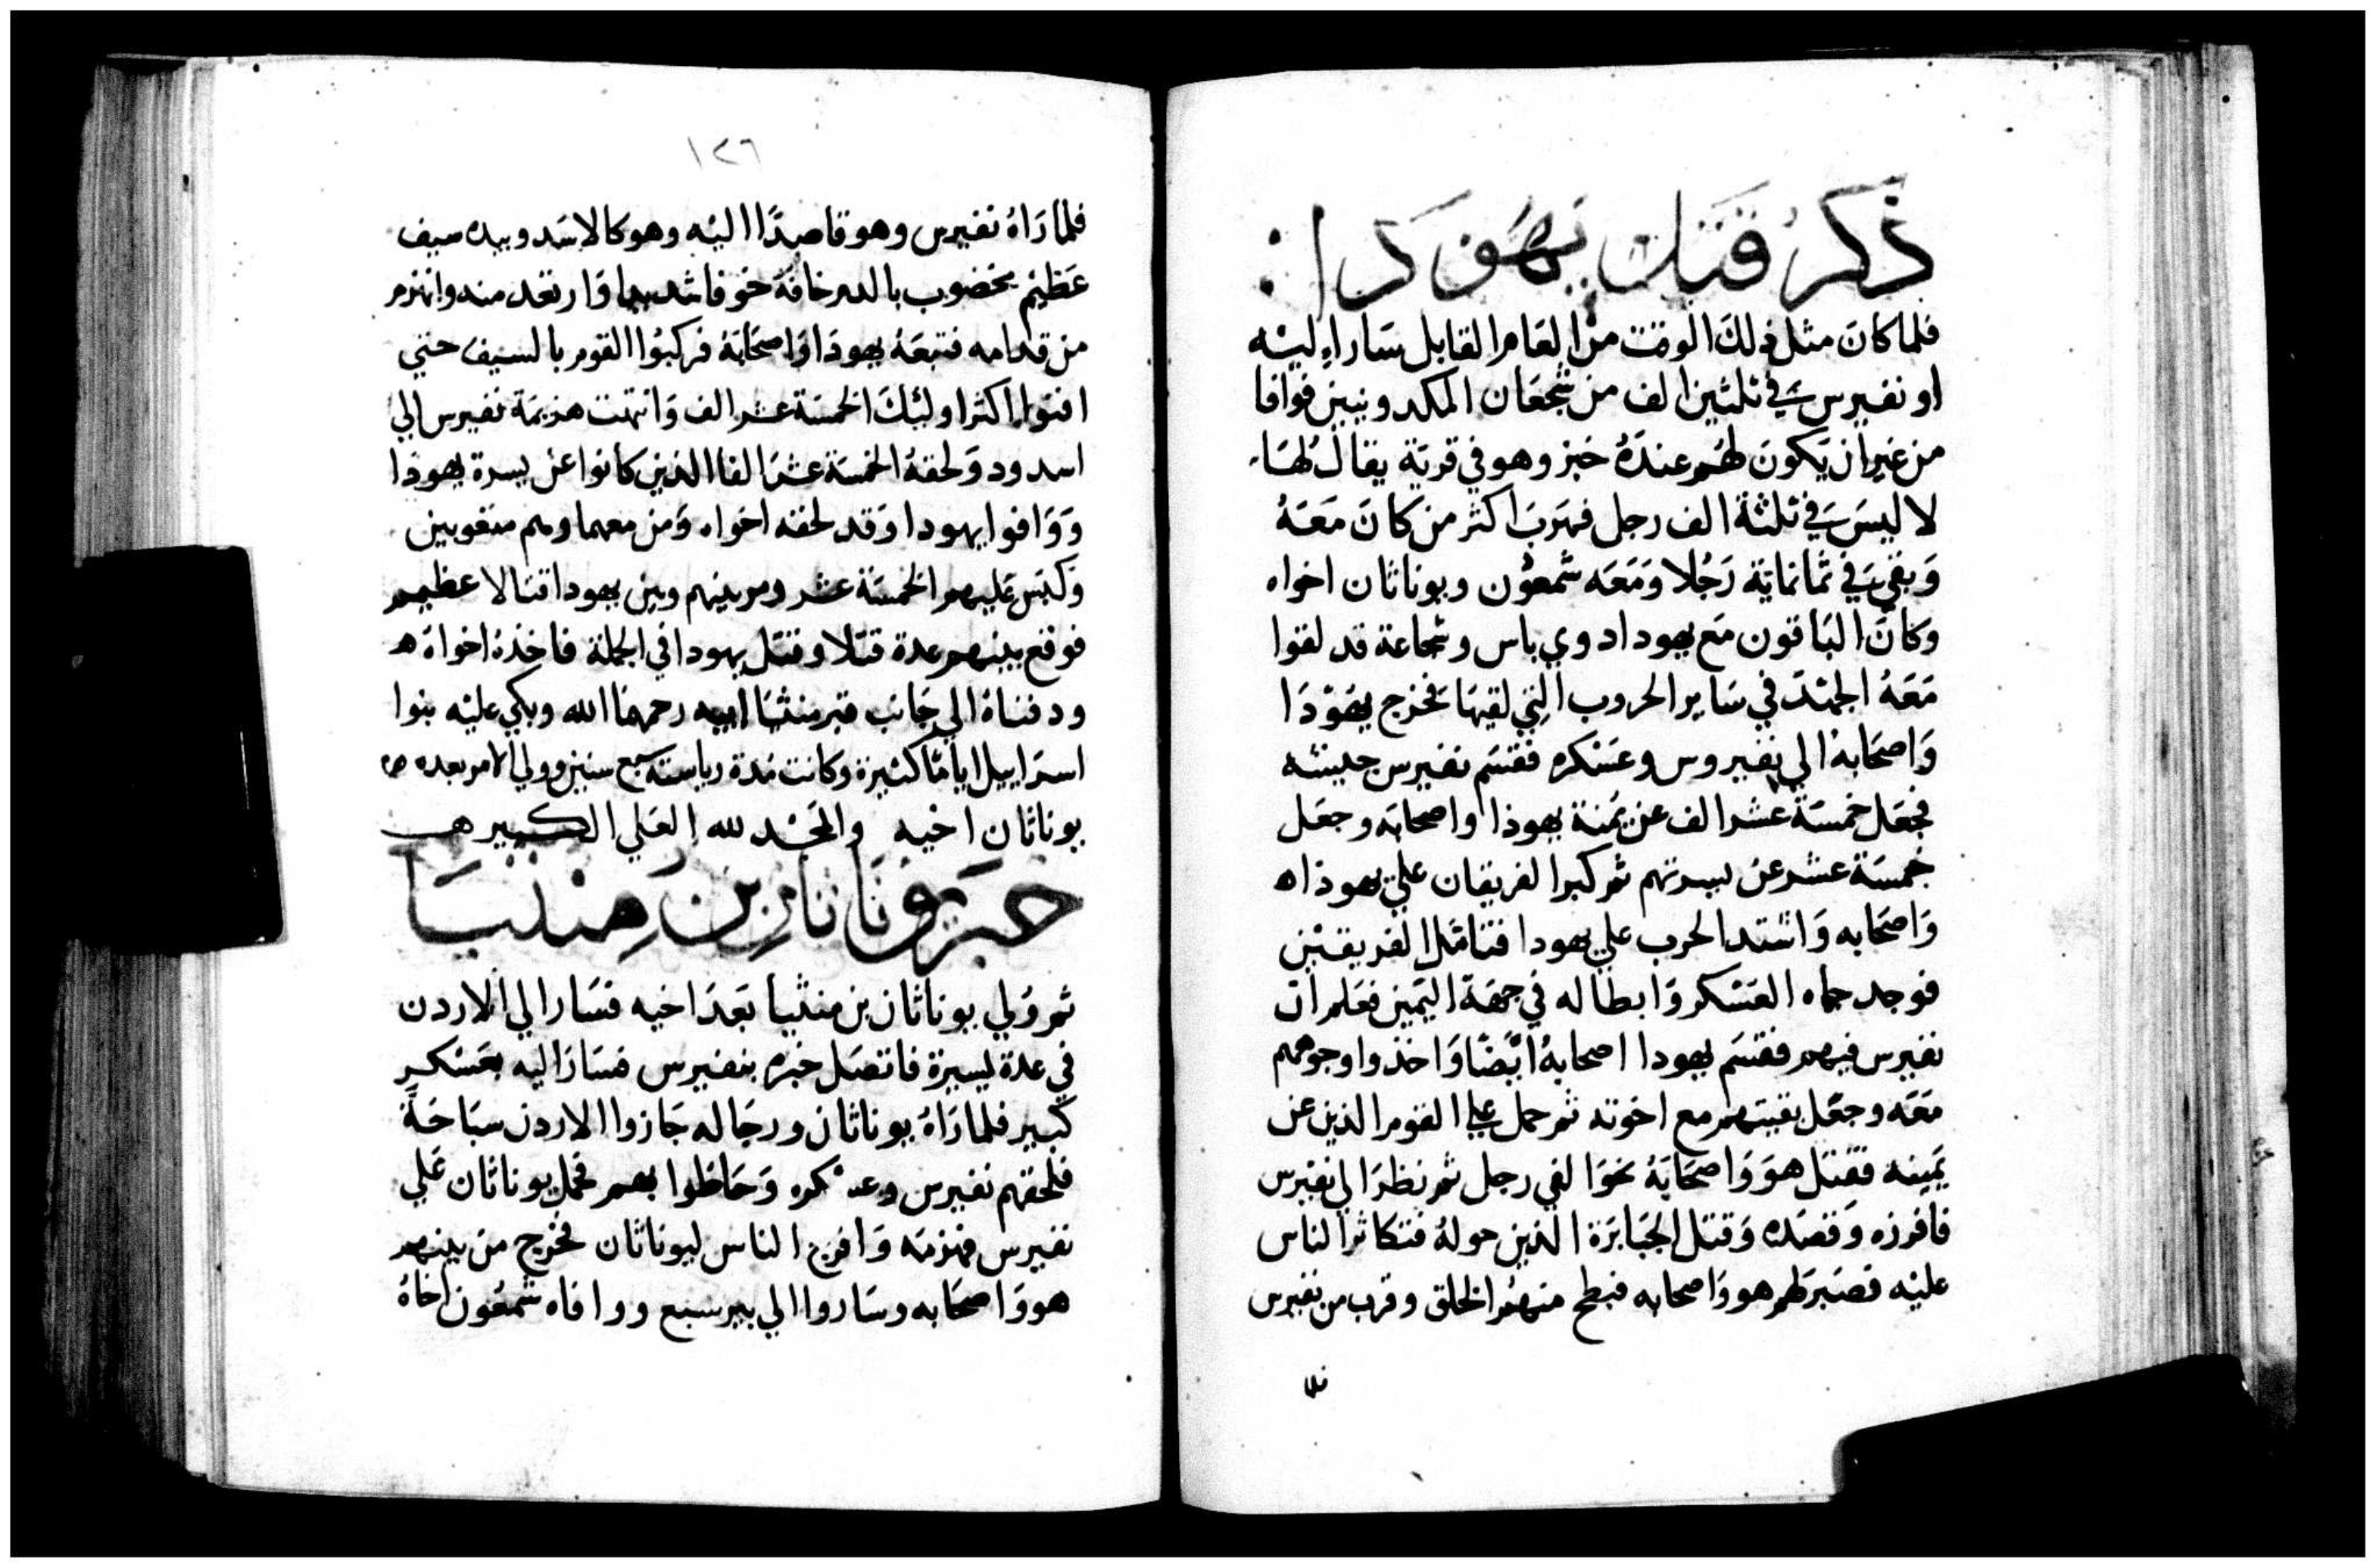 ذكر قتل يهودا :
فلما كان مثل ذلك الوقت من العام القابل سار اليه
او نفيرس في ثلثين الف من شجعان المكدونيين فوافا
من غير ان يكون لهم عنده خبز وهو في قرية يقال لها
لاليس في ثلثة الف رجل فهرب اكثر من كان معه
وبقي في ثمانماية رجلا ومعه شمعون ويوناثان اخواه
وكان الباقون مع يهودا دوي باس وشجاعة قد لقوا
معه الجهد في ساير الحروب التي لقيها فخرج يهودا
واصحابه الي نفيروس وعسكره فقسم نفيرس جيشه
فجعل خمسة عشر الف عن يمنة يهوذا واصحابه وجعل
خمسة عشر عن يسرتهم ثم ركبوا الفريقان علي يهوذا ه
واصحابه واشتد الحرب علي يهودا فتامل الفريقين
فوجد حماه العسكر وابطاله في جهة اليمين فعلم ان
نفيرس فيهم فقسم يهودا اصحابه ايضا واخذوا وجوههم
معه وجعل بقيتهم مع اخوته ثم حمل علي القوم الذين عن
يمينه فقتل هو واصحابه نحوا لفي رجل ثم نظر الي نفيرس
فافرزه وقصده وقتل الجبابرة الذين حوله فتكاثر الناس
عليه فصبر لهم هو واصحابه فبطح منهم الخلق وقرب من نفيرس
فلما
١٢٦
فلما راه نفيرس وهو قاصدا اليه وهو كالاسد وبيده سيف
عظيم مخضوب بالدم خافه خوفا شديدا وارتعد منه وانهزم
من قدامه فتبعه يهودا واصحابه فركبوا القوم بالسيف حتي
افنوا اكثر اوليك الخمسة عشر الف وانتهت هزيمة نفيرس الي
اسدود ولحقه الخمسة عشر الفا الذين كانوا عن يسرة يهوذا
ووافوا يهودا وقد لحقه اخواه ومن معهما وهم متعوبين
وكبس عليهم الخمسة عشر ومر بينهم وبين يهودا قتالا عظيم
فوقع بينهم عدة قتلا وقتل يهودا في الجملة فاخذه اخواه ه
ودفناه الي جانب قبر منثيا ابيه رحمهما الله وبكي عليه بنوا
اسراييل اياما كثيرة وكانت مدة رياسته سبع سنين وولي الامر بعده
يوناثان اخيه والحمد لله العلي الكبير هـ
خبر يوناثان بن منثيا
ثم ولي يوناثان بن منثيا بعد اخيه فسار الي الاردن
في عدة يسيرة فاتصل خبره بنفيرس فسار اليه بعسكر
كبير فلما راه يوناثان ورجاله جازوا الاردن سباحة
فلحقهم نفيرس وعسكره وحاطوا بهم فحمل يوناثان علي
نفيرس فهزمه وافرج الناس ليوناثان فخرج من بينهم
هو واصحابه وساروا الي بيرسبع ووافاه شمعون اخاه